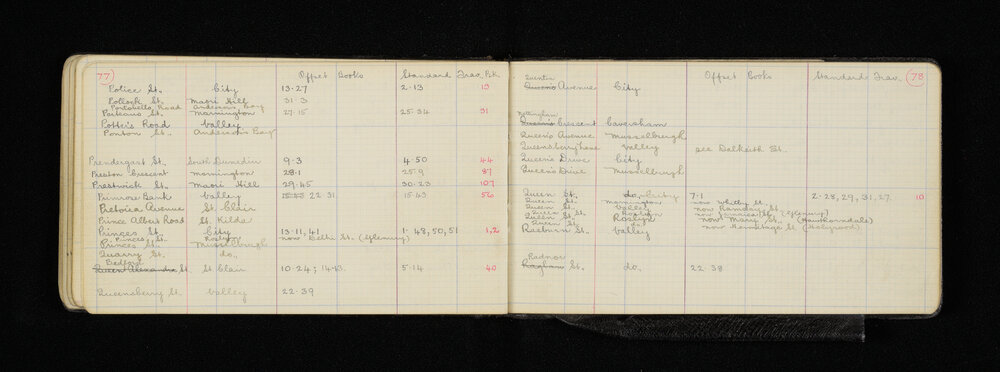 77
Offset Books Standard Trav. Bk.
Police St. City 13-27 2-13 19
Pollock St. Maori Hill 31-3
Portobello Road Andersons Bay
Poiteaus St. Mornington 27-15 25-34 31
Potter's Road Valley
Ponton St. Andersons Bay
Prendergast St. South Dunedin 9-3 4-50 44
Preston Crescent Mornington 28-1 25-9 87
Prestwick St. Maori Hill 29-45 30-23 107
Primrose Bank Valley 22-31 15-43 56
Pretoria Avenue St Clair
Prince Albert Road St. Kilda
Princes St. City 13-11, 41 1-48, 50, 51 1, 2
Princes St. Roslyn now Delhi St. (Glenross)
Princes St. Musselburgh
Quarry St. do.
Bedford
Queen Alexandra St. St. Clair 10-24; 14-13 5-14 40
Queensberry St. Valley 22-39
78
Offset Books Standard Trav.
Quentin
Queens Avenue City
Nottingham
Queens Crescent Caversham
Queen's Avenue Musselburgh
Queensberry Lane Valley see Dalkeith St.
Queen's Drive City
Queen's Drive Musselburgh
Queen St. do, City 7-1 2-28, 29, 31, 27. 10
Queen St. Mornington now Whitby St.
Queen St. Valley now Ramsay St.
Queen St. Roslyn
Queen St. Roslyn now Mary St. (Hawthorndale)
Raeburn St. Valley now Hermitage St (Holyrood)
Radnor
Raglan St. do. 22-38